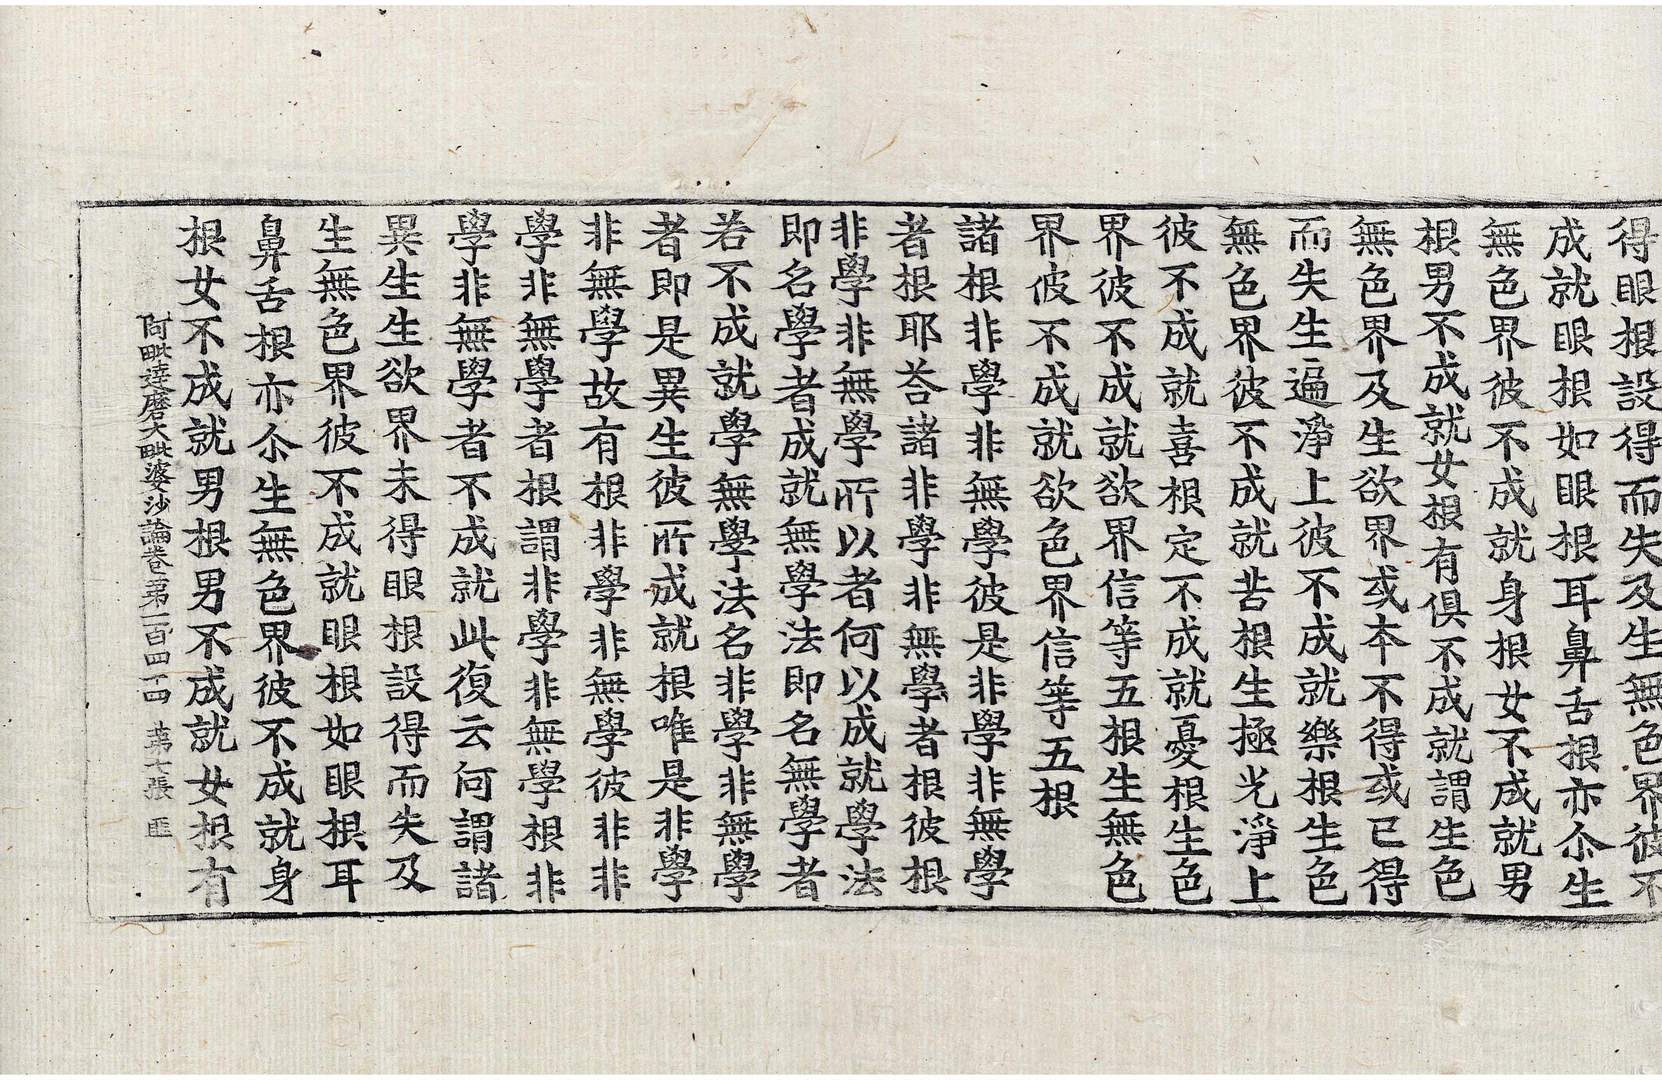 得眼根設得而失及生無色界彼不
成就眼根如眼根耳鼻舌根亦尒生
無色界彼不成就身根女不成就男
根男不成就女根有俱不成就謂生色
無色界及生欲界或本不得或已得
而失生遍淨上彼不成就樂根生色
無色界彼不成就苦根生極光淨上
彼不成就喜根定不成就憂根生色
界彼不成就欲界信等五根生無色
界彼不成就欲色界信等五根
諸根非學非無學彼是非學非無學
者根耶荅諸非學非無學者根彼根
非學非無學所以者何以成就學法
即名學者成就無學法即名無學者
若不成就學無學法名非學非無學
者即是異生彼所成就根唯是非學
非無學故有根非學非無學彼非非
學非無學者根謂非學非無學根非
學非無學者不成就此復云何謂諸
異生生欲界未得眼根設得而失及
生無色界彼不成就眼根如眼根耳
鼻舌根亦尒生無色界彼不成就身
根女不成就男根男不成就女根有
阿毗達磨大毗婆沙論卷第一百四十四 第七張 匪